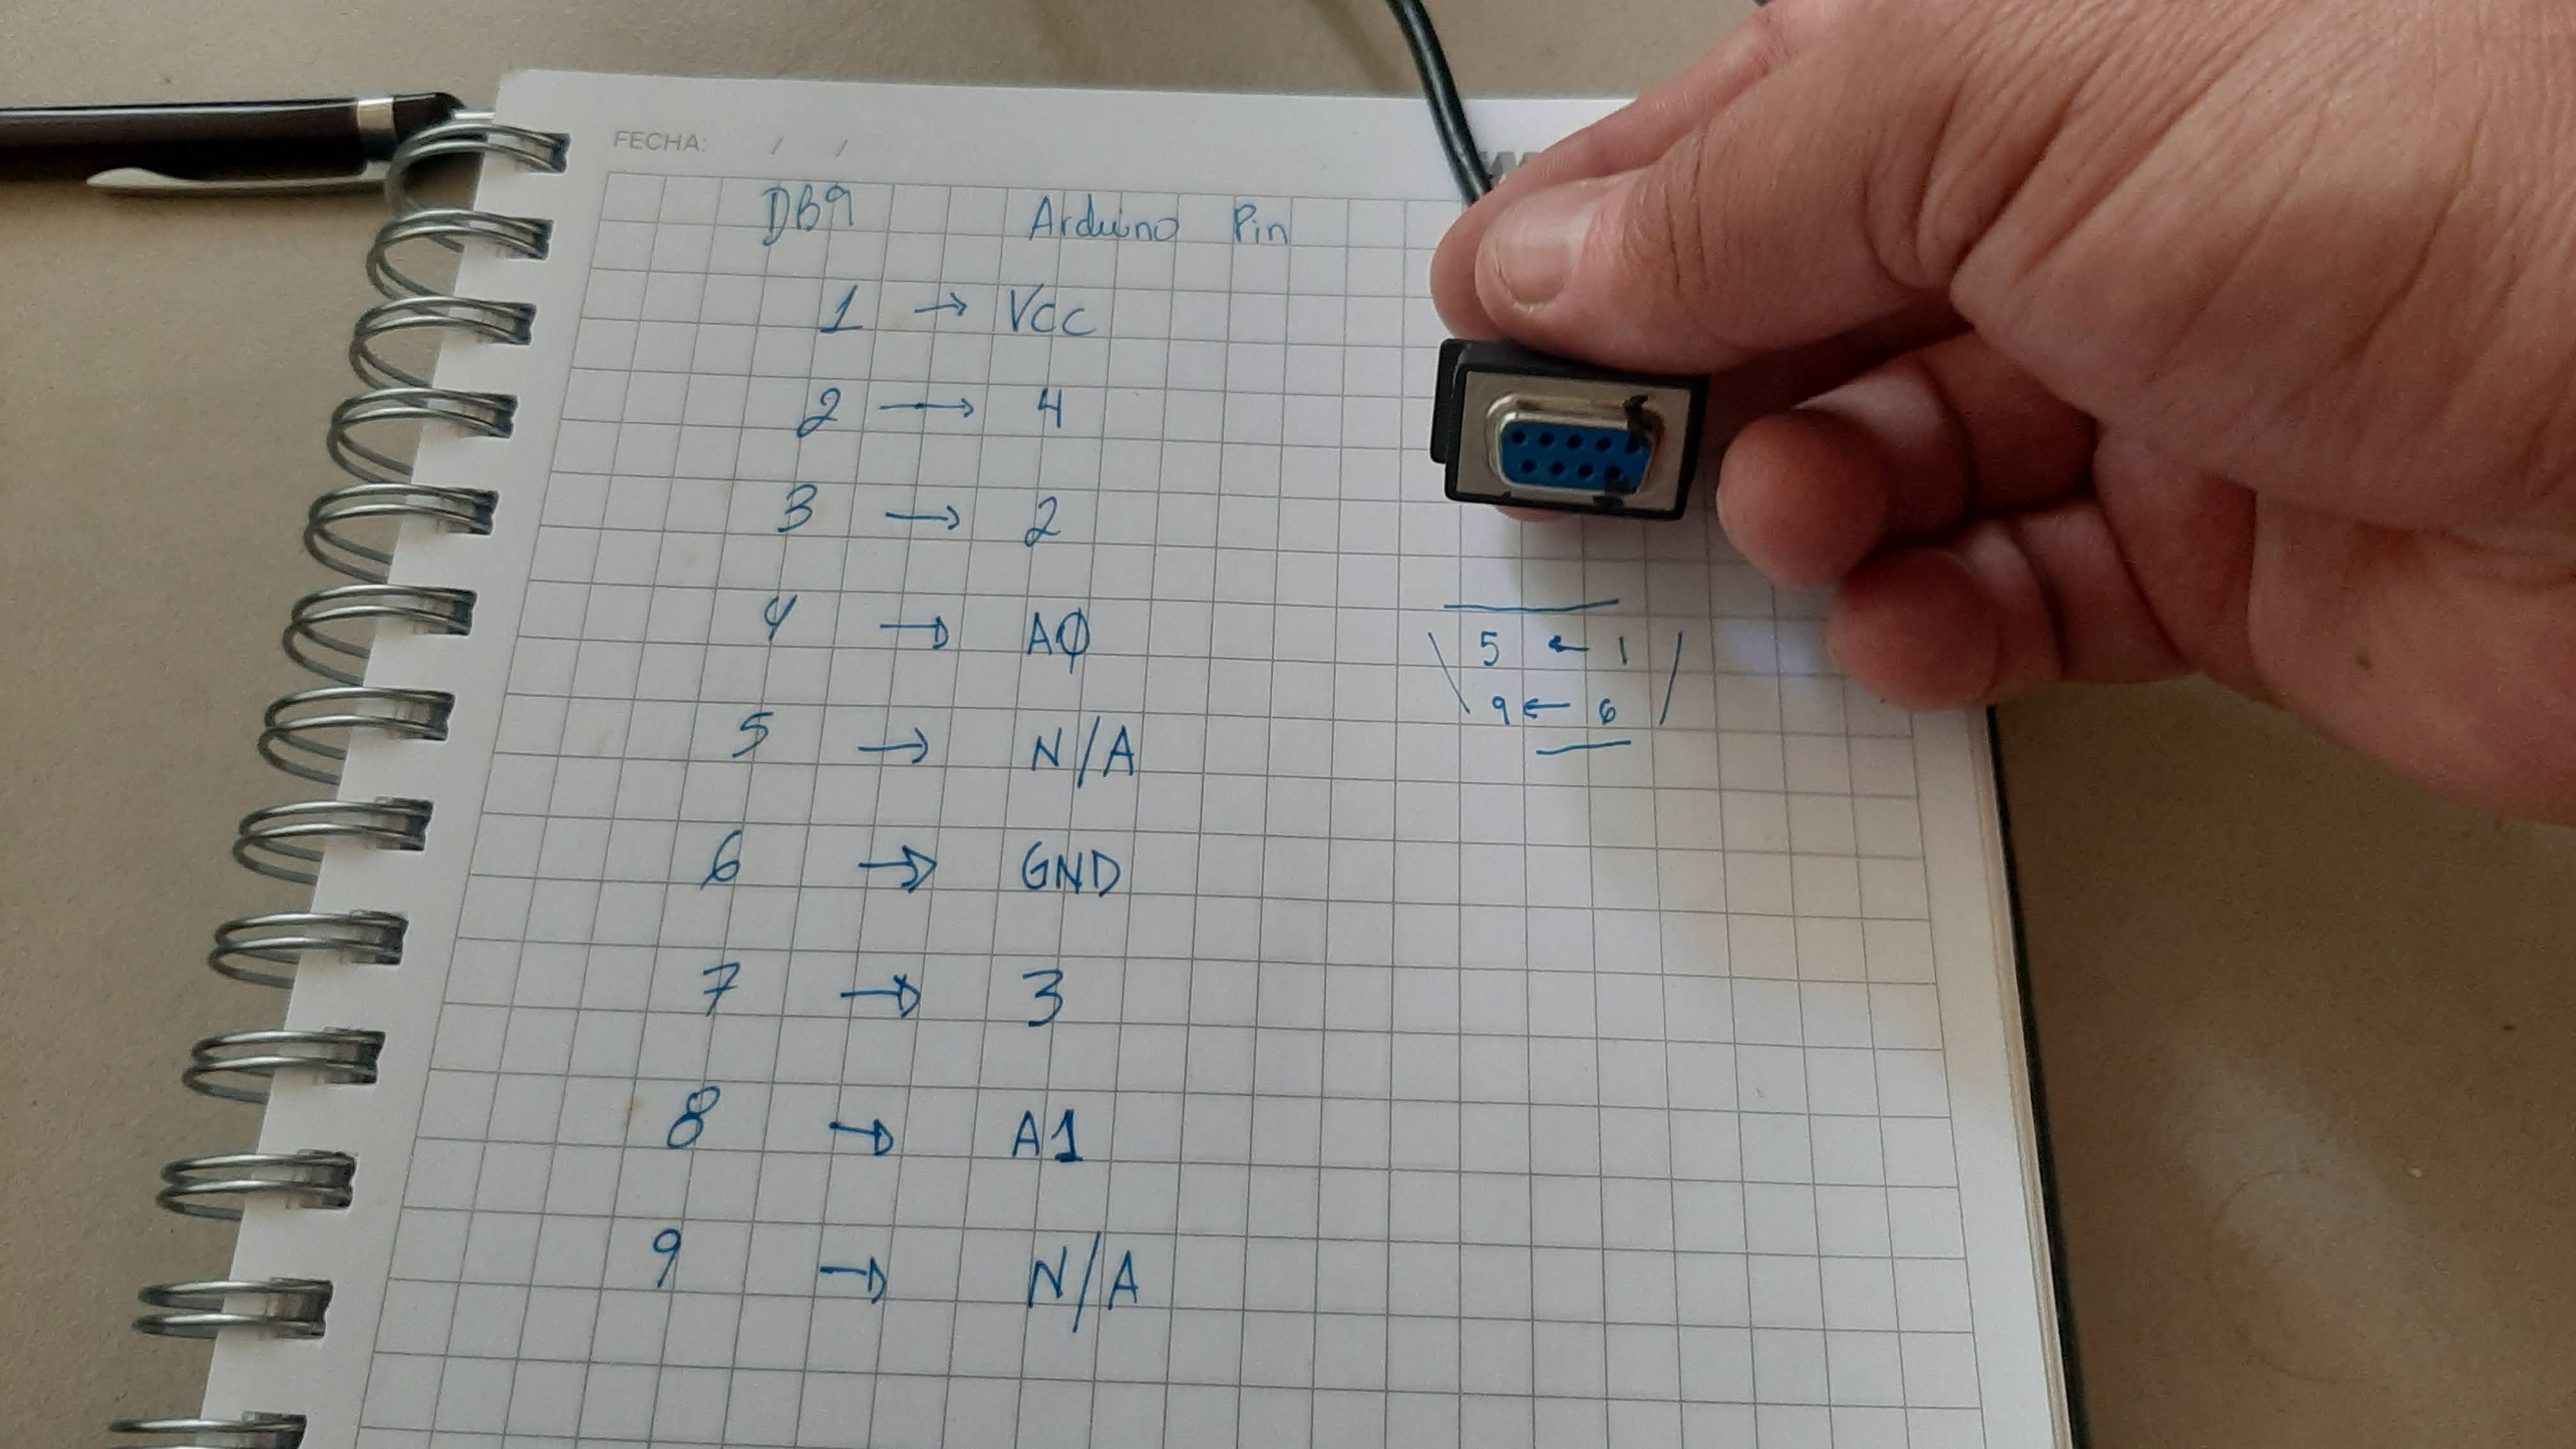 FECHA: / /
DB9 Arduino Pin
1 → Vcc
2 → 4
3 → 2
4 → AØ
5 → N/A
6 → GND
7 → 3
8 → A1
9 → N/A
5 ← 1
9 ← 6